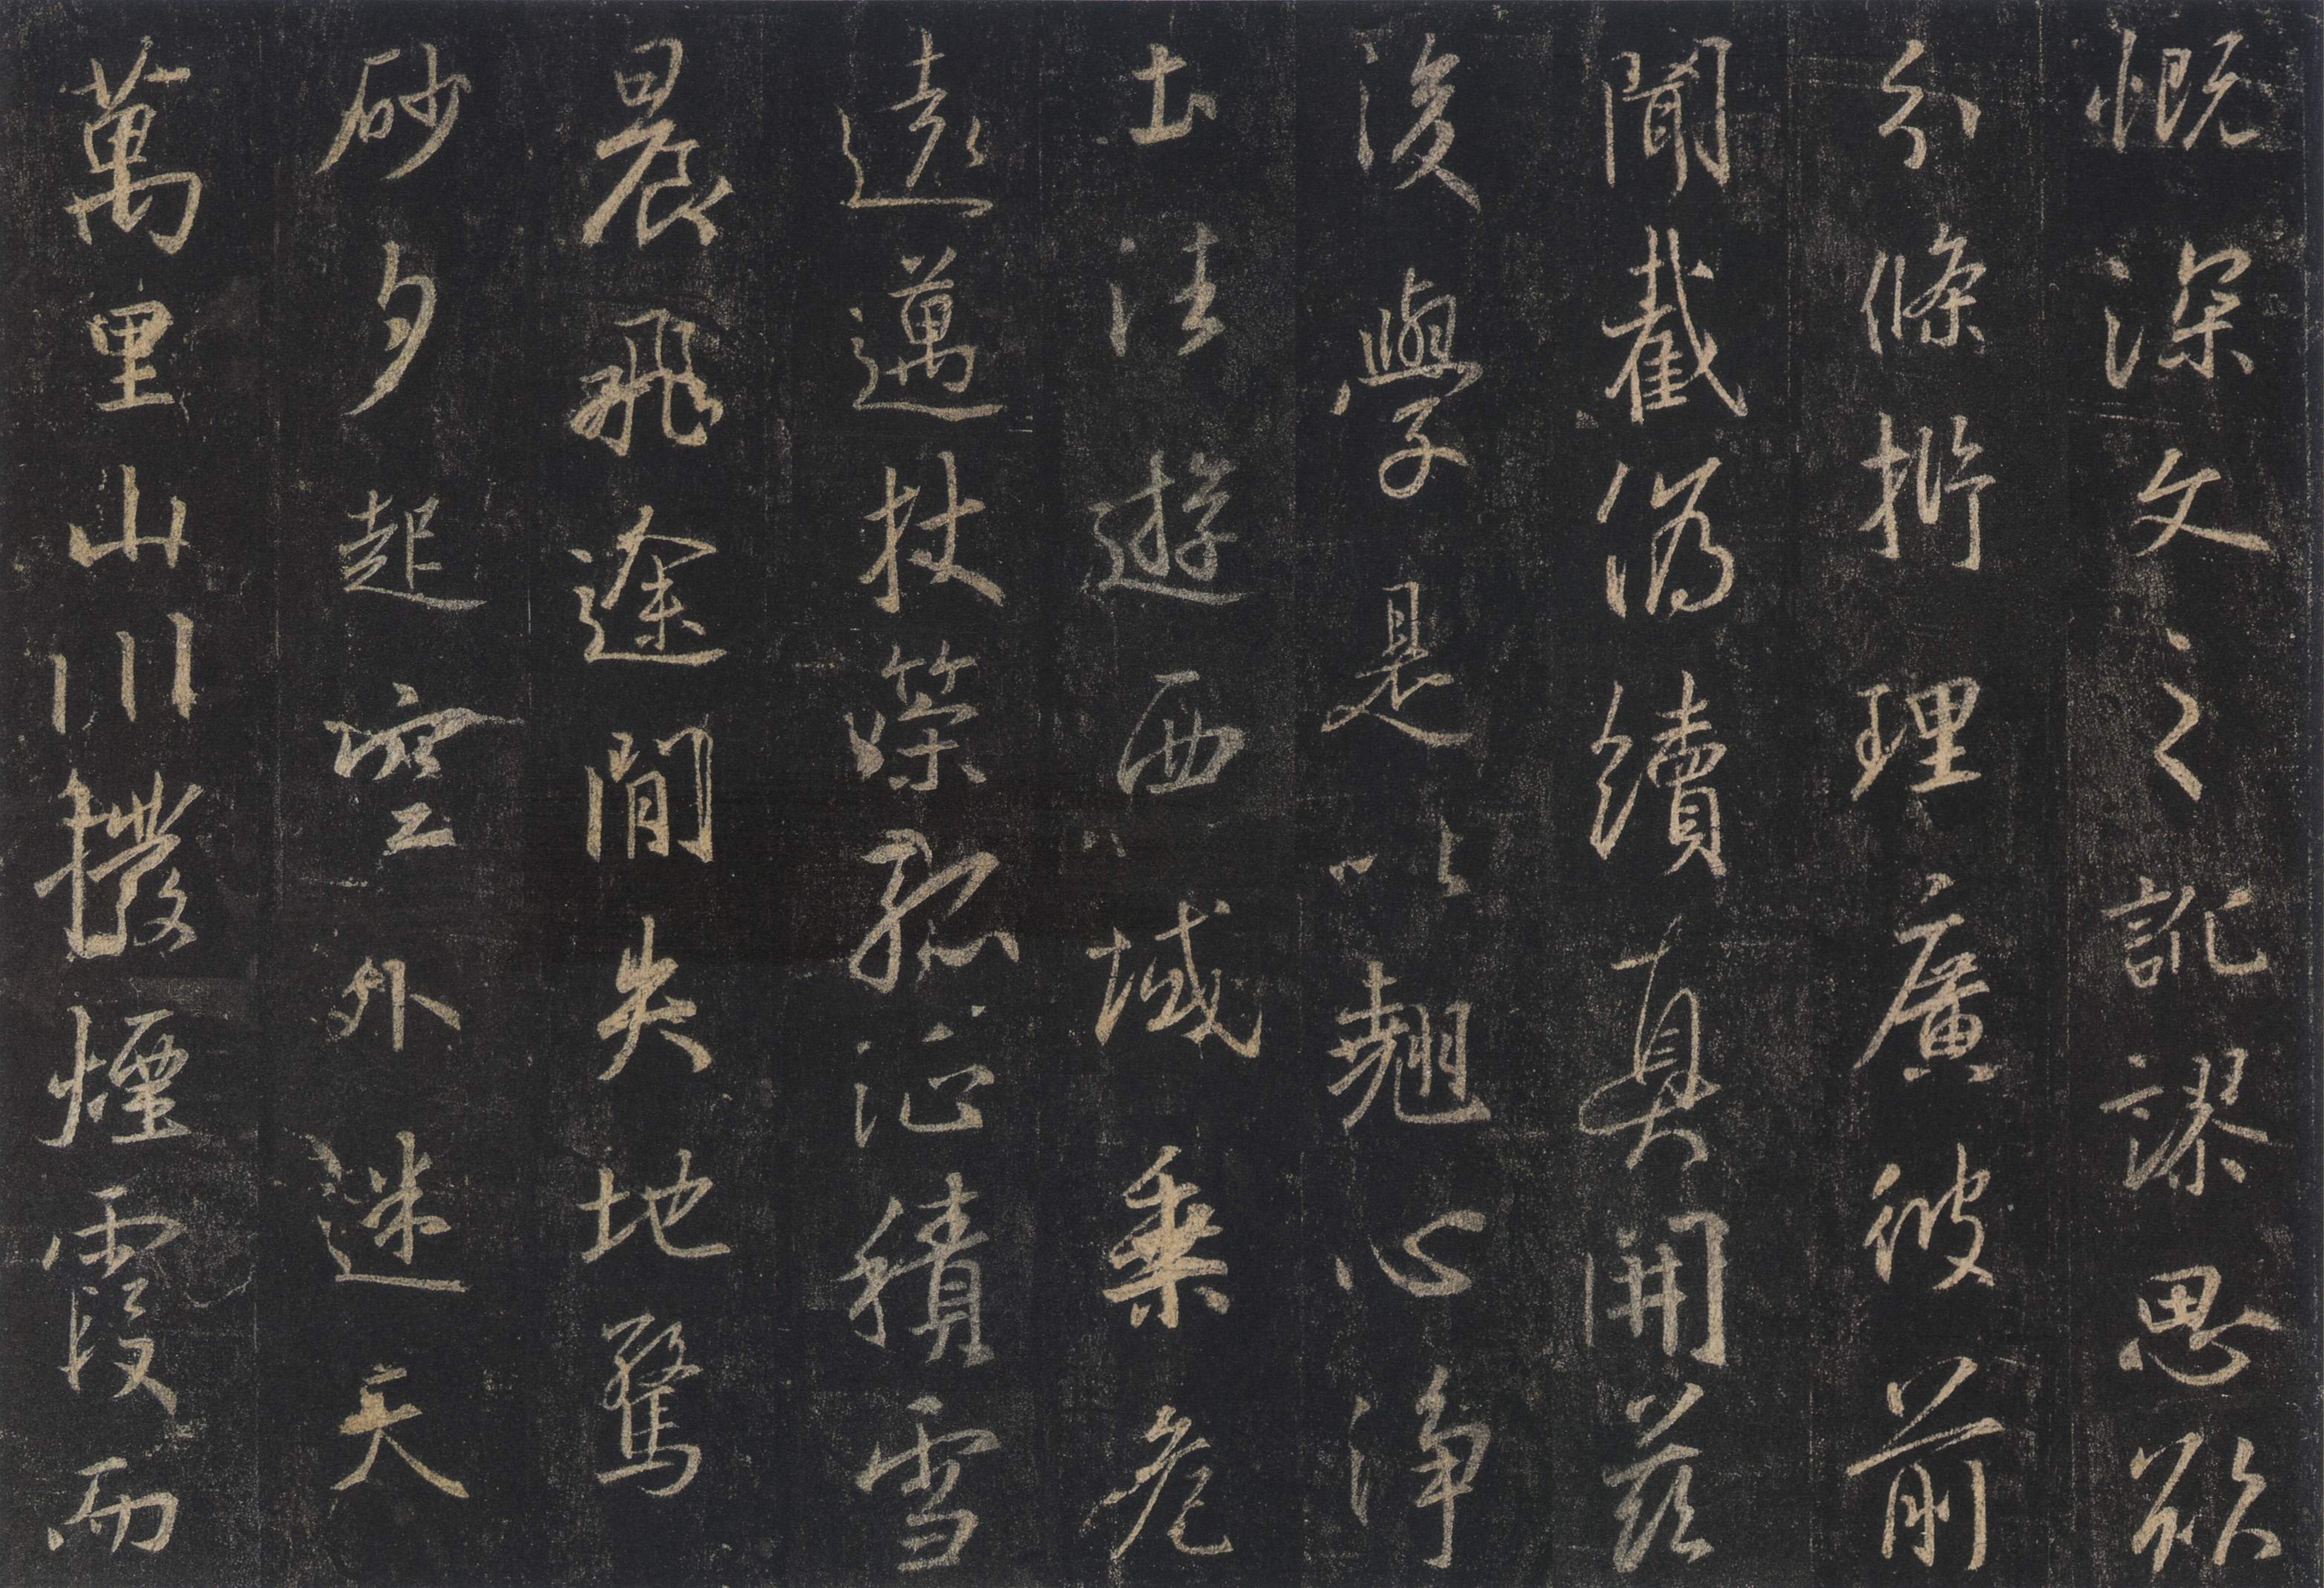 慨深文之訛謬思欲
分條㭊理廣彼前
聞截偽續真開茲
後學是以翹心淨
土法遊西域乘危
遠邁杖策孤征積雪
晨飛途間失地驚
砂夕起空外迷天
萬里山川撥煙霞而